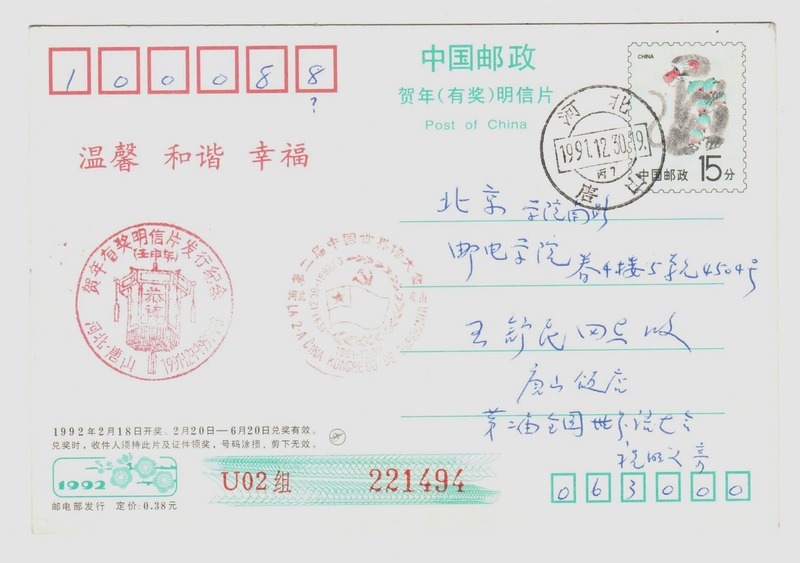 1 0 0 0 8 8
?
中国邮政
贺年(有奖)明信片
Post of China
CHINA
15分
中国邮政
河北
1991.12.30.19.
丙7
唐山
温馨 和谐 幸福
北京 学院南路
邮电学院 春4楼5单元4504号
王舒民同志收
唐山饭店
第二届全国世界语大会
贺年有奖明信片发行纪念
(壬申年)
恭禧
河北·唐山
第二届中国世界语大会
LA 2-A ĈINA KONGRESO DE ESPERANTO
1992年2月18日开奖。2月20日—6月20日兑奖有效。
兑奖时,收件人须持此片及证件领奖,号码涂损、剪下无效。
1992
邮电部发行 定价:0.38元
U02组 221494
0 6 3 0 0 0